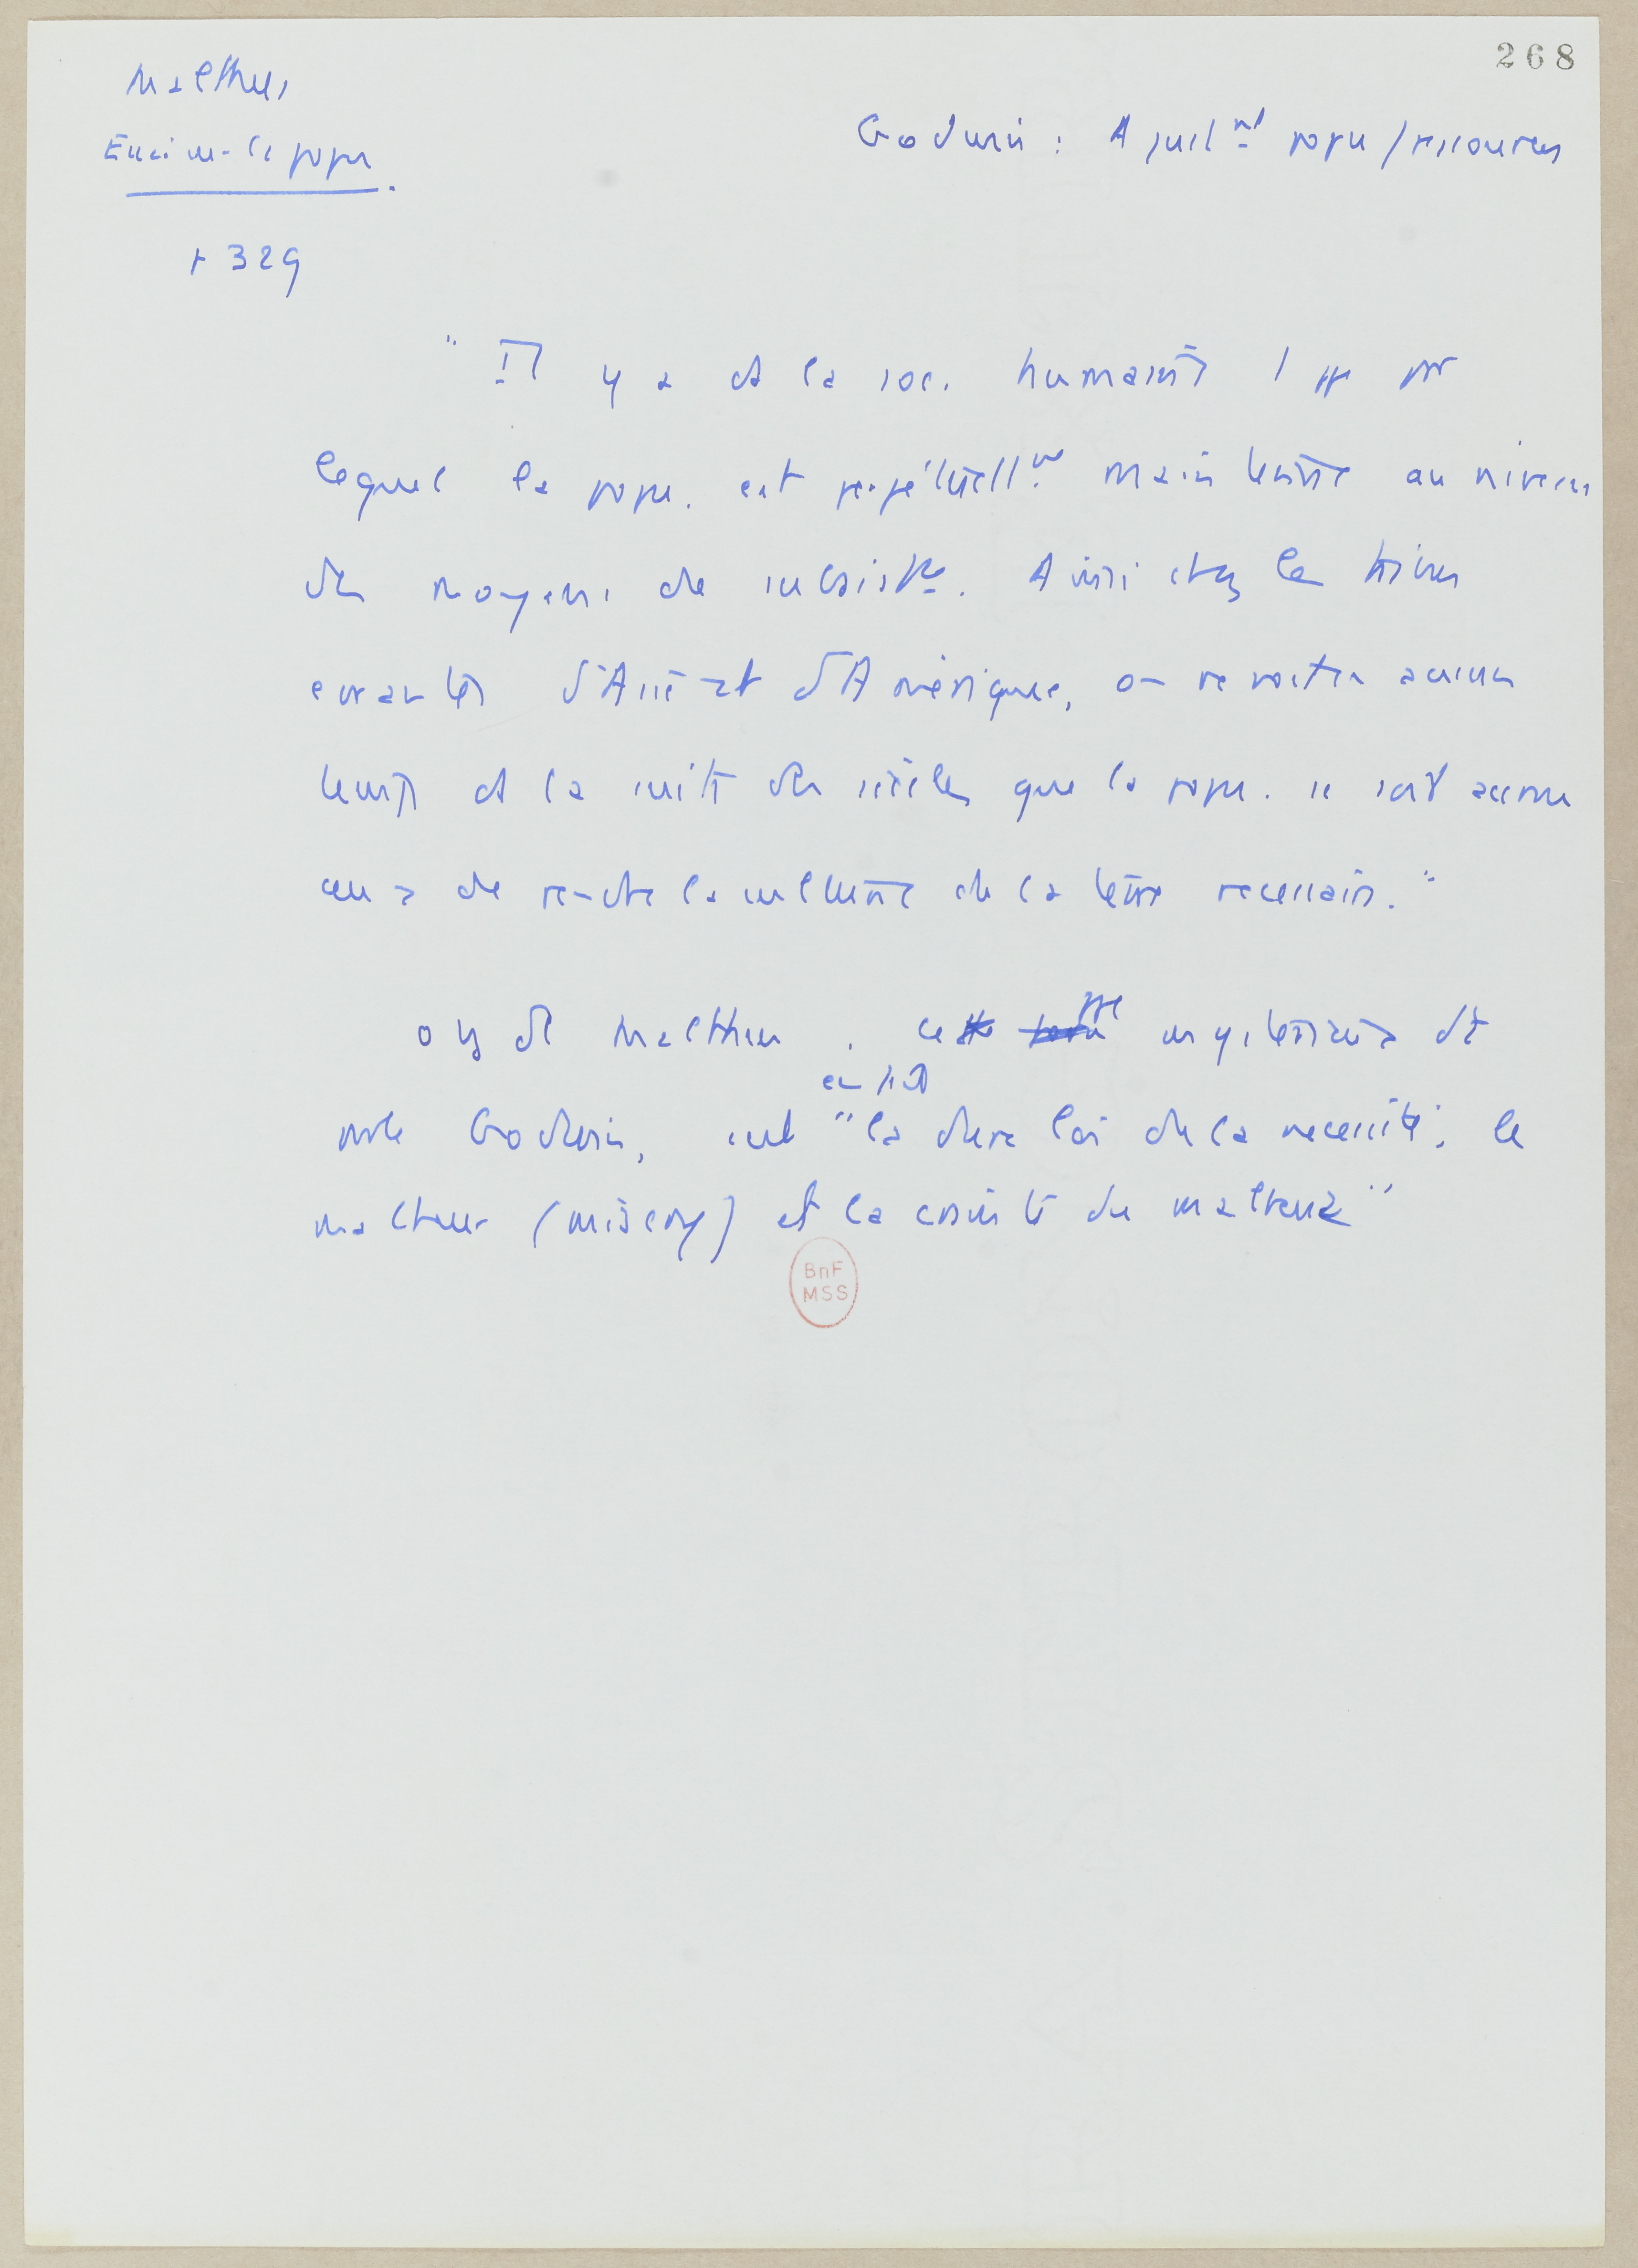 268
Malthus
Essai sur la popu.
p 329
Godwin : Ajust^mt popu / ressources
" Il y a ds la soc. humaine 1 pp par
lequel la popu. est perpétuell^mt maintenue au niveau
des moyens de subsist^ce. Ainsi chez les tribus
errantes d'Asie et d'Amérique, on ne voit en aucun
temps ds la suite des siècles que la popu. se soit accrue
au de rendre la culture de la terre nécessaire. "
Or pr Malthus, ce ppe mystérieux dt
parle Godwin, c'est "la dure loi de la nécessité ; le
malheur (misery) et la crainte du malheur"
BnF
MSS